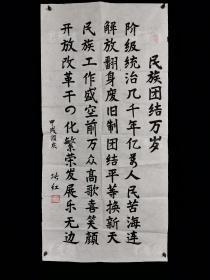 民族团结万岁
阶级统治几千年亿万人民苦海连
解放翻身废旧制团结平等换新天
民族工作盛空前万众高歌喜笑颜
开放改革干四化繁荣发展乐无边
甲戌